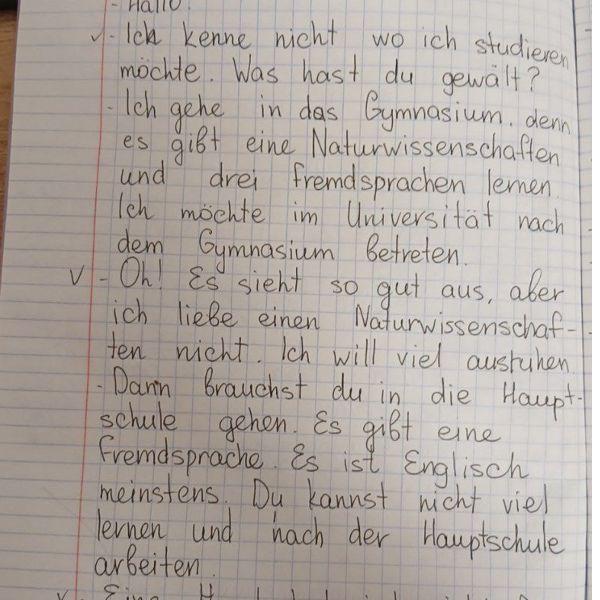 - Hallo!
v - Ich kenne nicht wo ich studieren
möchte. Was hast du gewält?
- Ich gehe in das Gymnasium, denn
es gibt eine Naturwissenschaften
und drei Fremdsprachen lernen.
Ich möchte im Universität nach
dem Gymnasium betreten.
V - Oh! Es sieht so gut aus, aber
ich liebe einen Naturwissenschaf-
ten nicht. Ich will viel austuhen.
- Dann brauchst du in die Haupt-
schule gehen. Es gibt eine
Fremdsprache. Es ist Englisch
meinstens. Du kannst nicht viel
lernen und nach der Hauptschule
arbeiten.